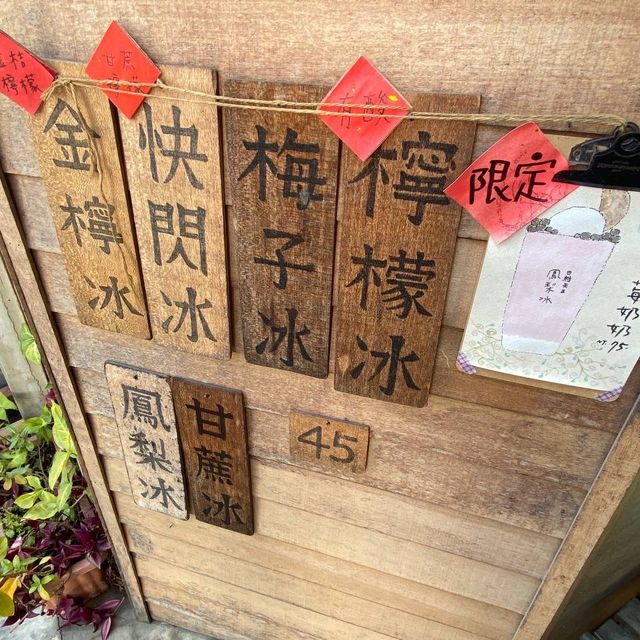 金桔
檸檬
甘蔗
有酸
限定
金檸冰
快閃冰
梅子冰
檸檬冰
鳳梨冰
甘蔗冰
45
鳳梨冰
莓奶奶
NT.95